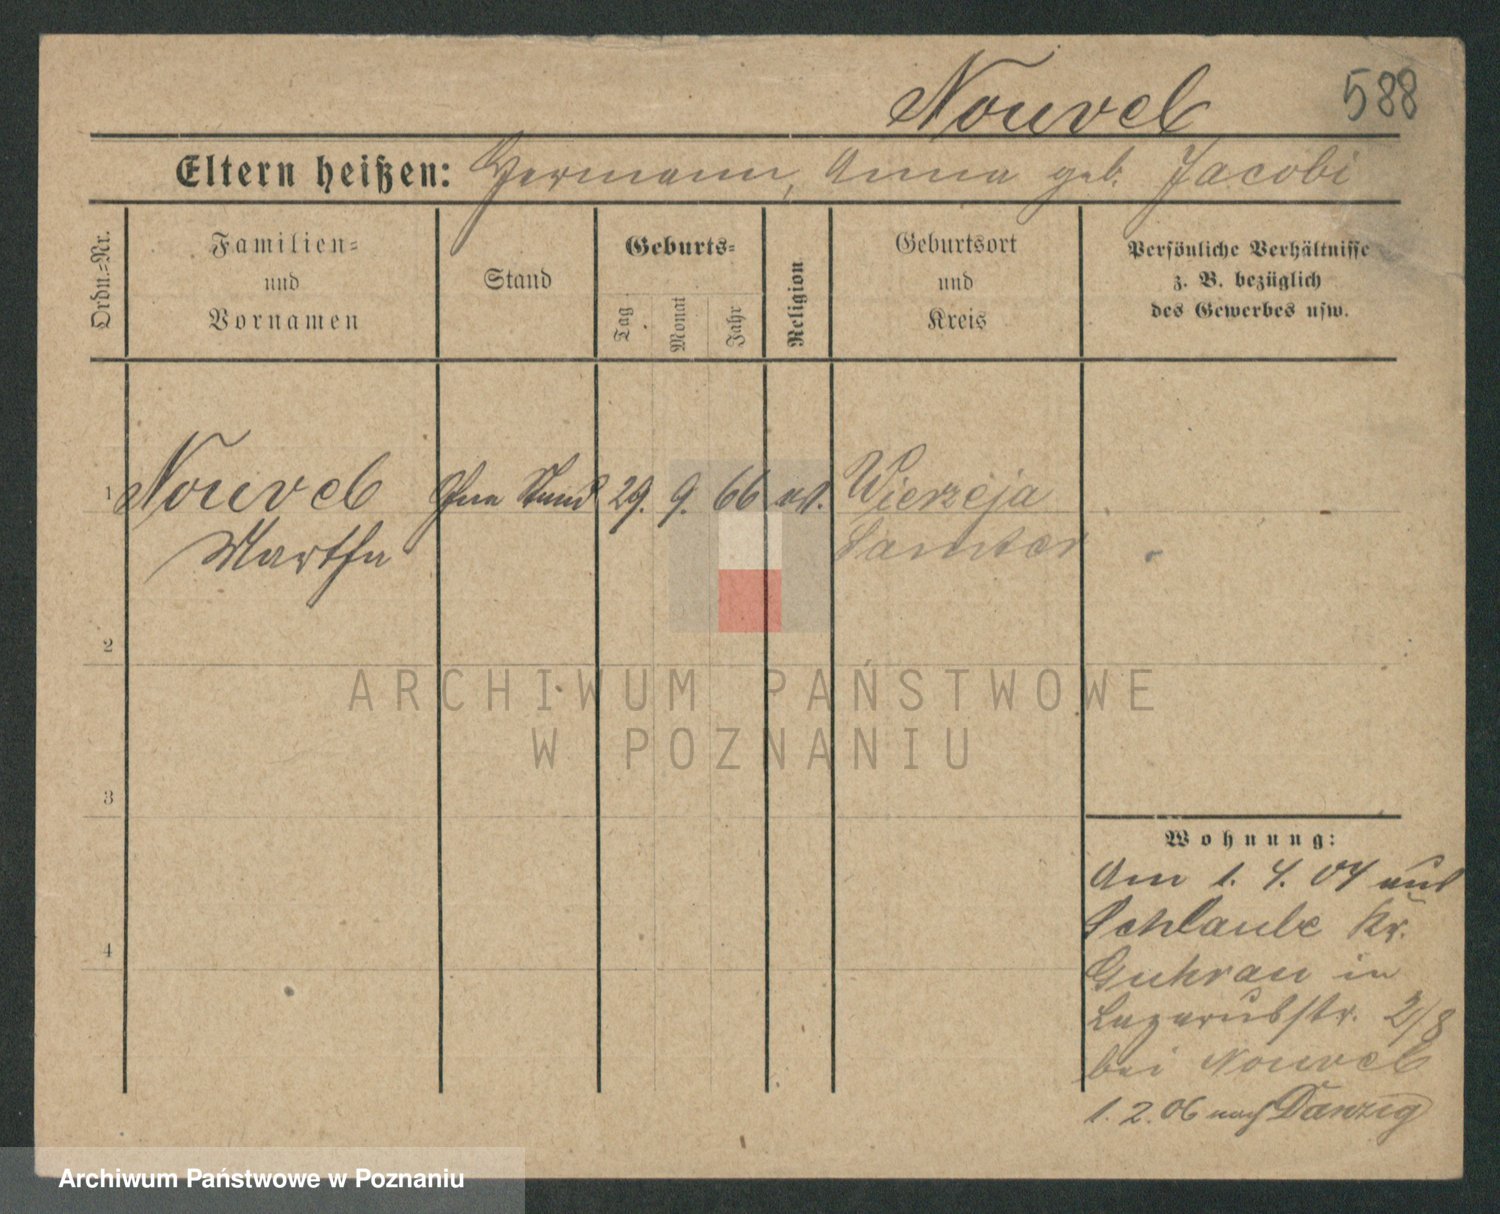 588
Nouvel
Eltern heißen: Hermann, Anna geb. Jacobi
Ordn.=Nr.
Familien=
und
Vornamen
Stand
Geburts=
Tag
Monat
Jahr
Religion
Geburtsort
und
Kreis
Persönliche Verhältnisse
z. B. bezüglich
des Gewerbes usw.
1 Nouvel Ohne Stand 29. 9. 66 ev. Wierzeja
Martha Samter
2
3
4
Wohnung:
Am 1. 4. 04 aus
Schlaube Kr.
Guhrau in
Lazarusstr. 2/8
bei Nouvel
1. 2. 06 nach Danzig
ARCHIWUM PAŃSTWOWE
W POZNANIU
Archiwum Państwowe w Poznaniu